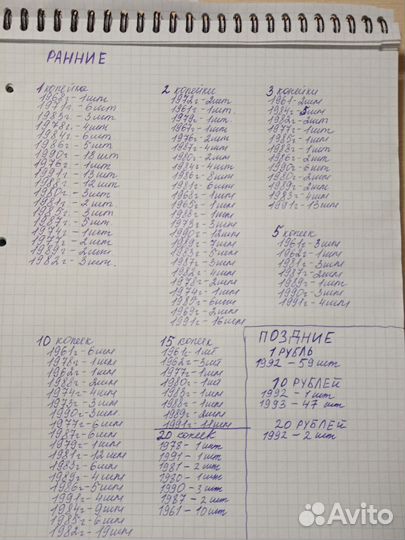 РАННИЕ
1 копейка
1968г - 1шт
1971г - 6шт
1985г - 3шт
1978г - 4шт
1984г - 6шт
1986г - 5шт
1990г - 18шт
1976г - 1шт
1991г - 13шт
1988г - 12шт
1980г - 3шт
1981г - 2шт
1983г - 3шт
1987г - 3шт
1974г - 1шт
1979г - 2шт
1989г - 2шт
1982г - 3шт
2 копейки
1972г - 2шт
1961г - 1шт
1979г - 1шт
1967г - 1шт
1976г - 2шт
1987г - 4шт
1980г - 2шт
1984г - 4шт
1986г - 8шт
1981г - 6шт
1968г - 1шт
1965г - 1шт
1988г - 1шт
1973г - 3шт
1990г - 12шт
1989г - 7шт
1983г - 5шт
1985г - 3шт
1982г - 4шт
1978г - 2шт
1974г - 1шт
1985г - 6шт
1969г - 2шт
1991г - 16шт
3 копейки
1961 - 2шт
1984г - 5шт
1982г - 2шт
1977г - 1шт
1985г - 1шт
1988г - 1шт
1986г - 2шт
1990г - 6шт
1980г - 2шт
1989г - 2шт
1983г - 4шт
1991г - 13шт
5 копеек
1961г - 3шт
1962г - 1шт
1971г - 3шт
1987г - 2шт
1989г - 1шт
1990г - 3шт
1991г - 4шт
10 копеек
1961г - 6шт
1978г - 1шт
1982г - 1шт
1988г - 2шт
1974г - 4шт
1973г - 3шт
1990г - 3шт
1977г - 6шт
1987г - 6шт
1979г - 1шт
1981г - 12шт
1983г - 6шт
1989г - 4шт
1986г - 5шт
1991г - 4шт
1984г - 9шт
1985г - 6шт
1982г - 19шт
15 копеек
1961г - 1шт
1962г - 3шт
1977г - 1шт
1980г - 1шт
1985г - 1шт
1988г - 1шт
1989г - 2шт
1991г - 18шт
20 копеек
1978 - 1шт
1991 - 1шт
1981 - 2шт
1980 - 1шт
1990 - 3шт
1987 - 2шт
1961 - 10шт
ПОЗДНИЕ
1 РУБЛЬ
1992 - 59шт
10 РУБЛЕЙ
1992 - 1шт
1993 - 47шт
20 РУБЛЕЙ
1992 - 2шт
Avito